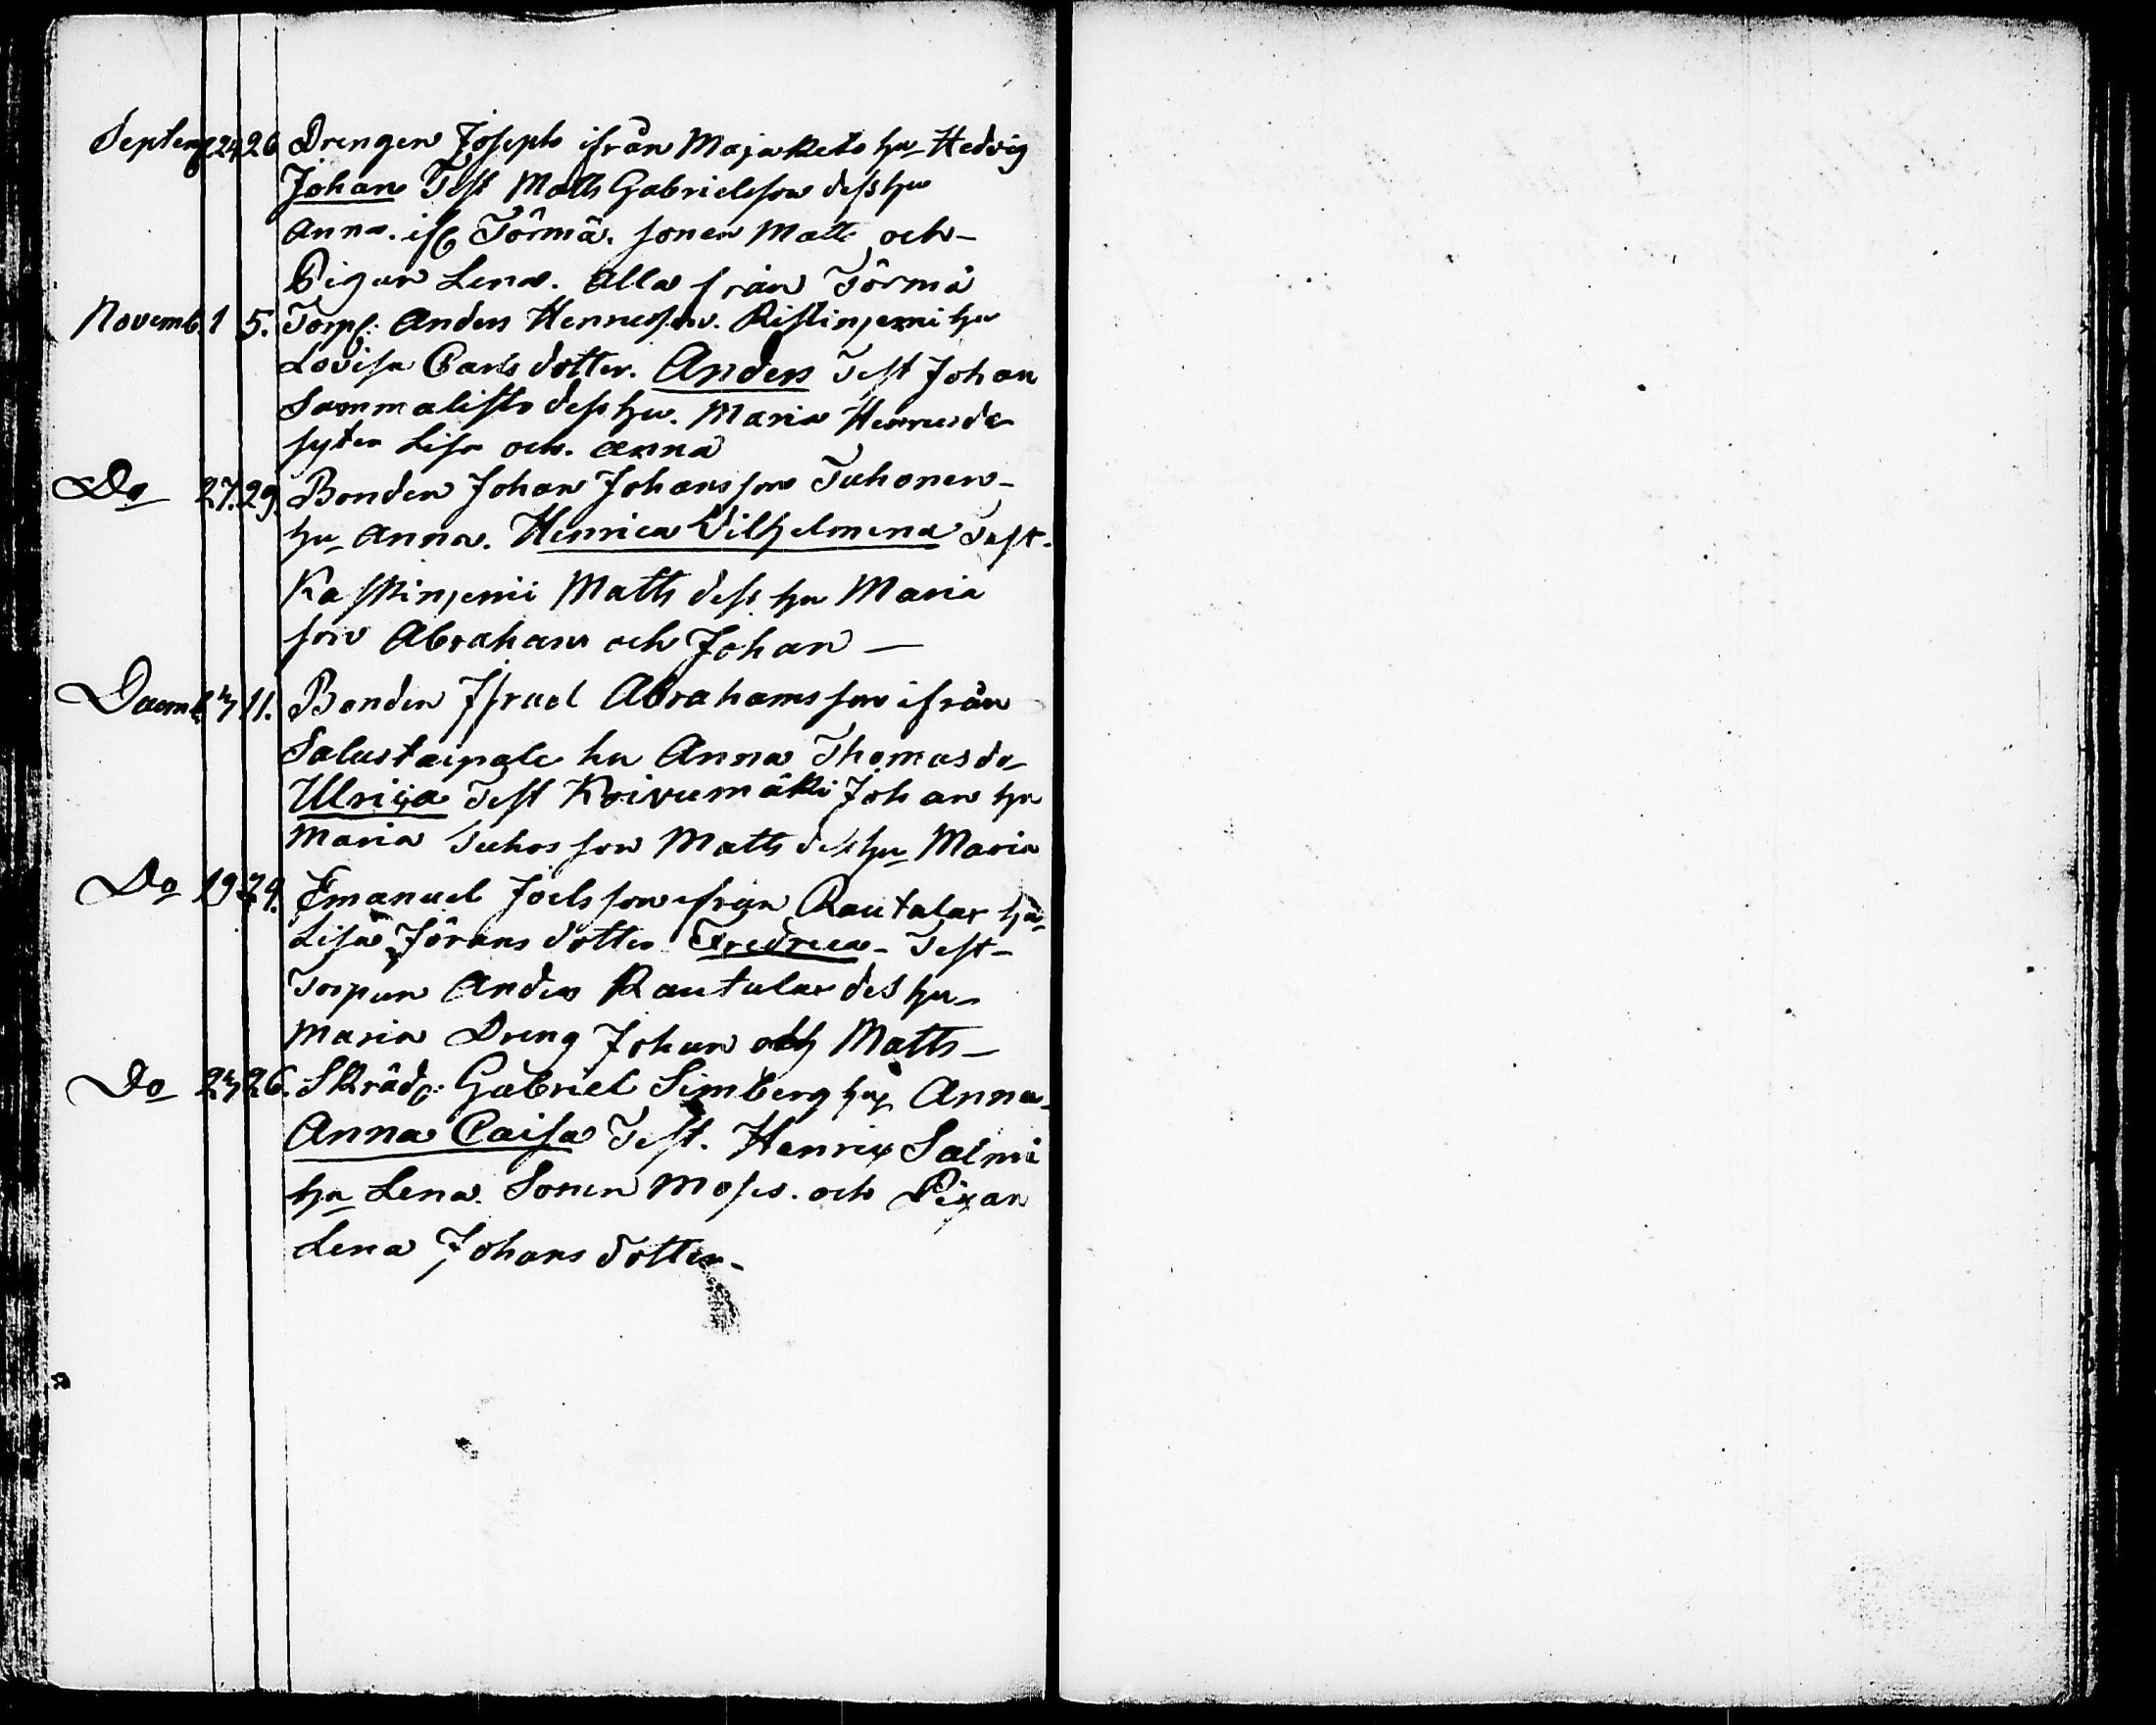 Septemb 24 26 Drengen Joseph ifrån Majakets hu Hedvig
Johan Test Matts Gabrielsson dess hu
Anna. if Törmä. sonen Matts och
Pigan Lena. Alla från Törmä
Novemb. 1 5. Torp: Anders Hennesson. Ristinjemi hu
Lovisa Carlsdotter. Anders Test Johan
Sammalisto dess hu. Maria Henriesdr
syter Lisa och. Anna
Do 27. 29. Bonden Johan Johansson Tuhonen
hu Anna. Henrica Vilhelmena Test.
Kaskinjemi Matts dess hu Maria
son Abraham och Johan
Decemb. 7 11. Bonden Israel Abrahamsson ifrån
Salustaipale hu Anna Thomasdr
Ulrica Test Koivumäki Johan hu
Maria Tuhos son Matts dess hu Maria
Do 19 24. Emanuel Joelsson ifrån Rautalax hu
Lisa Jöransdotter Fredrica Test
Torparn Anders Rautalax des hu
Maria Dreng Johan och Matts
Do 27 26. Skräd: Gabriel Simberg hu Anna
Anna Caisa Test. Henrix Salmi
hu Lena. Sonen Moses. och Pigan
Lena Johans dotter